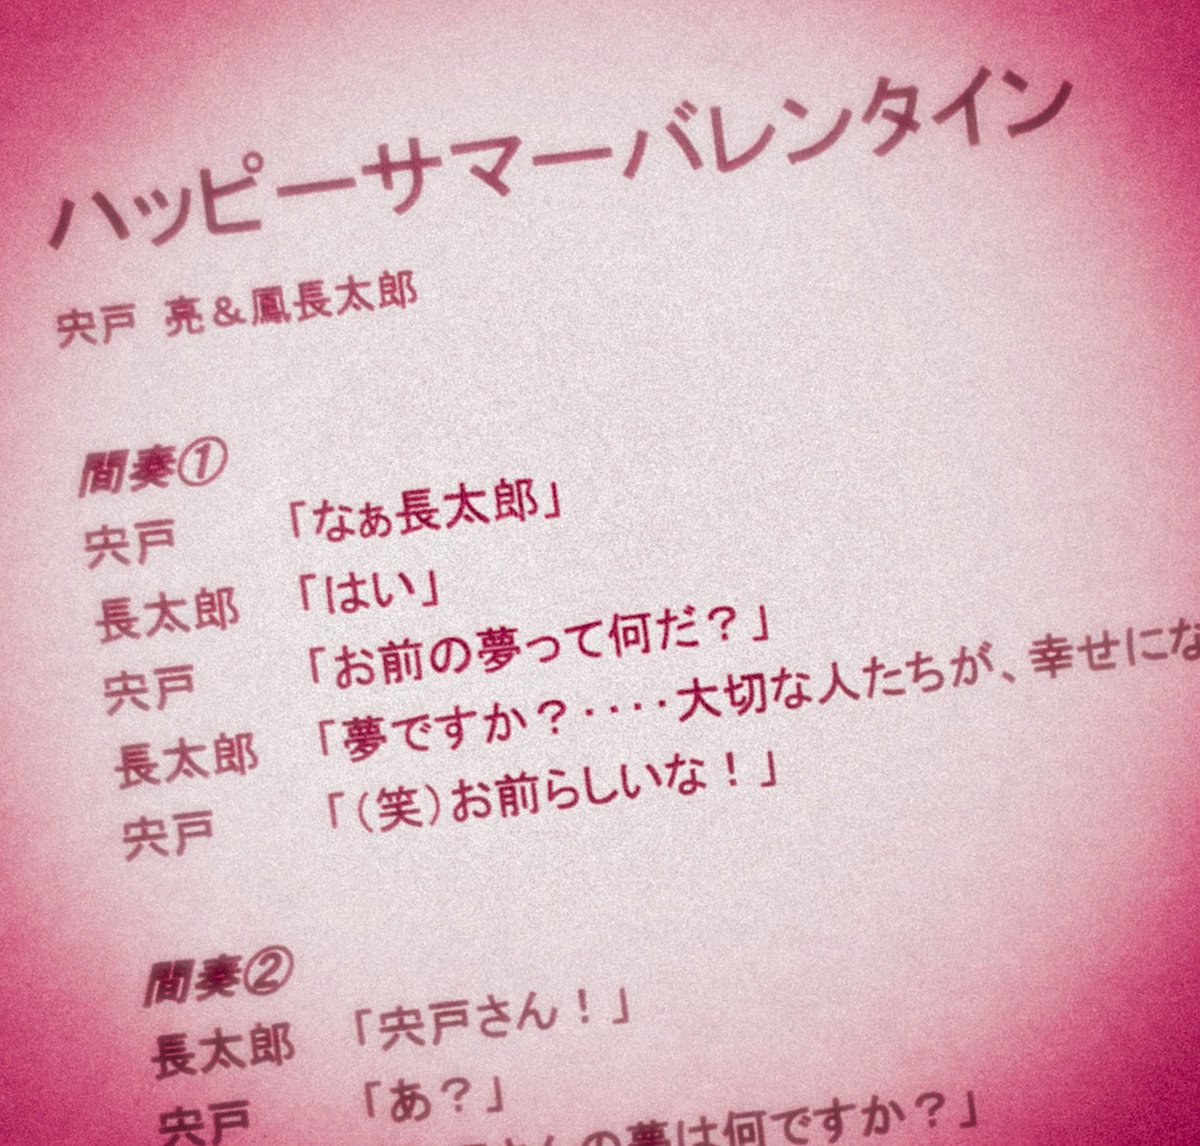 ハッピーサマーバレンタイン
宍戸 亮＆鳳長太郎
間奏①
宍戸 「なぁ長太郎」
長太郎 「はい」
宍戸 「お前の夢って何だ？」
長太郎 「夢ですか？‥‥大切な人たちが、幸せにな
宍戸 「（笑）お前らしいな！」
間奏②
長太郎 「宍戸さん！」
宍戸 「あ？」
さんの夢は何ですか？」